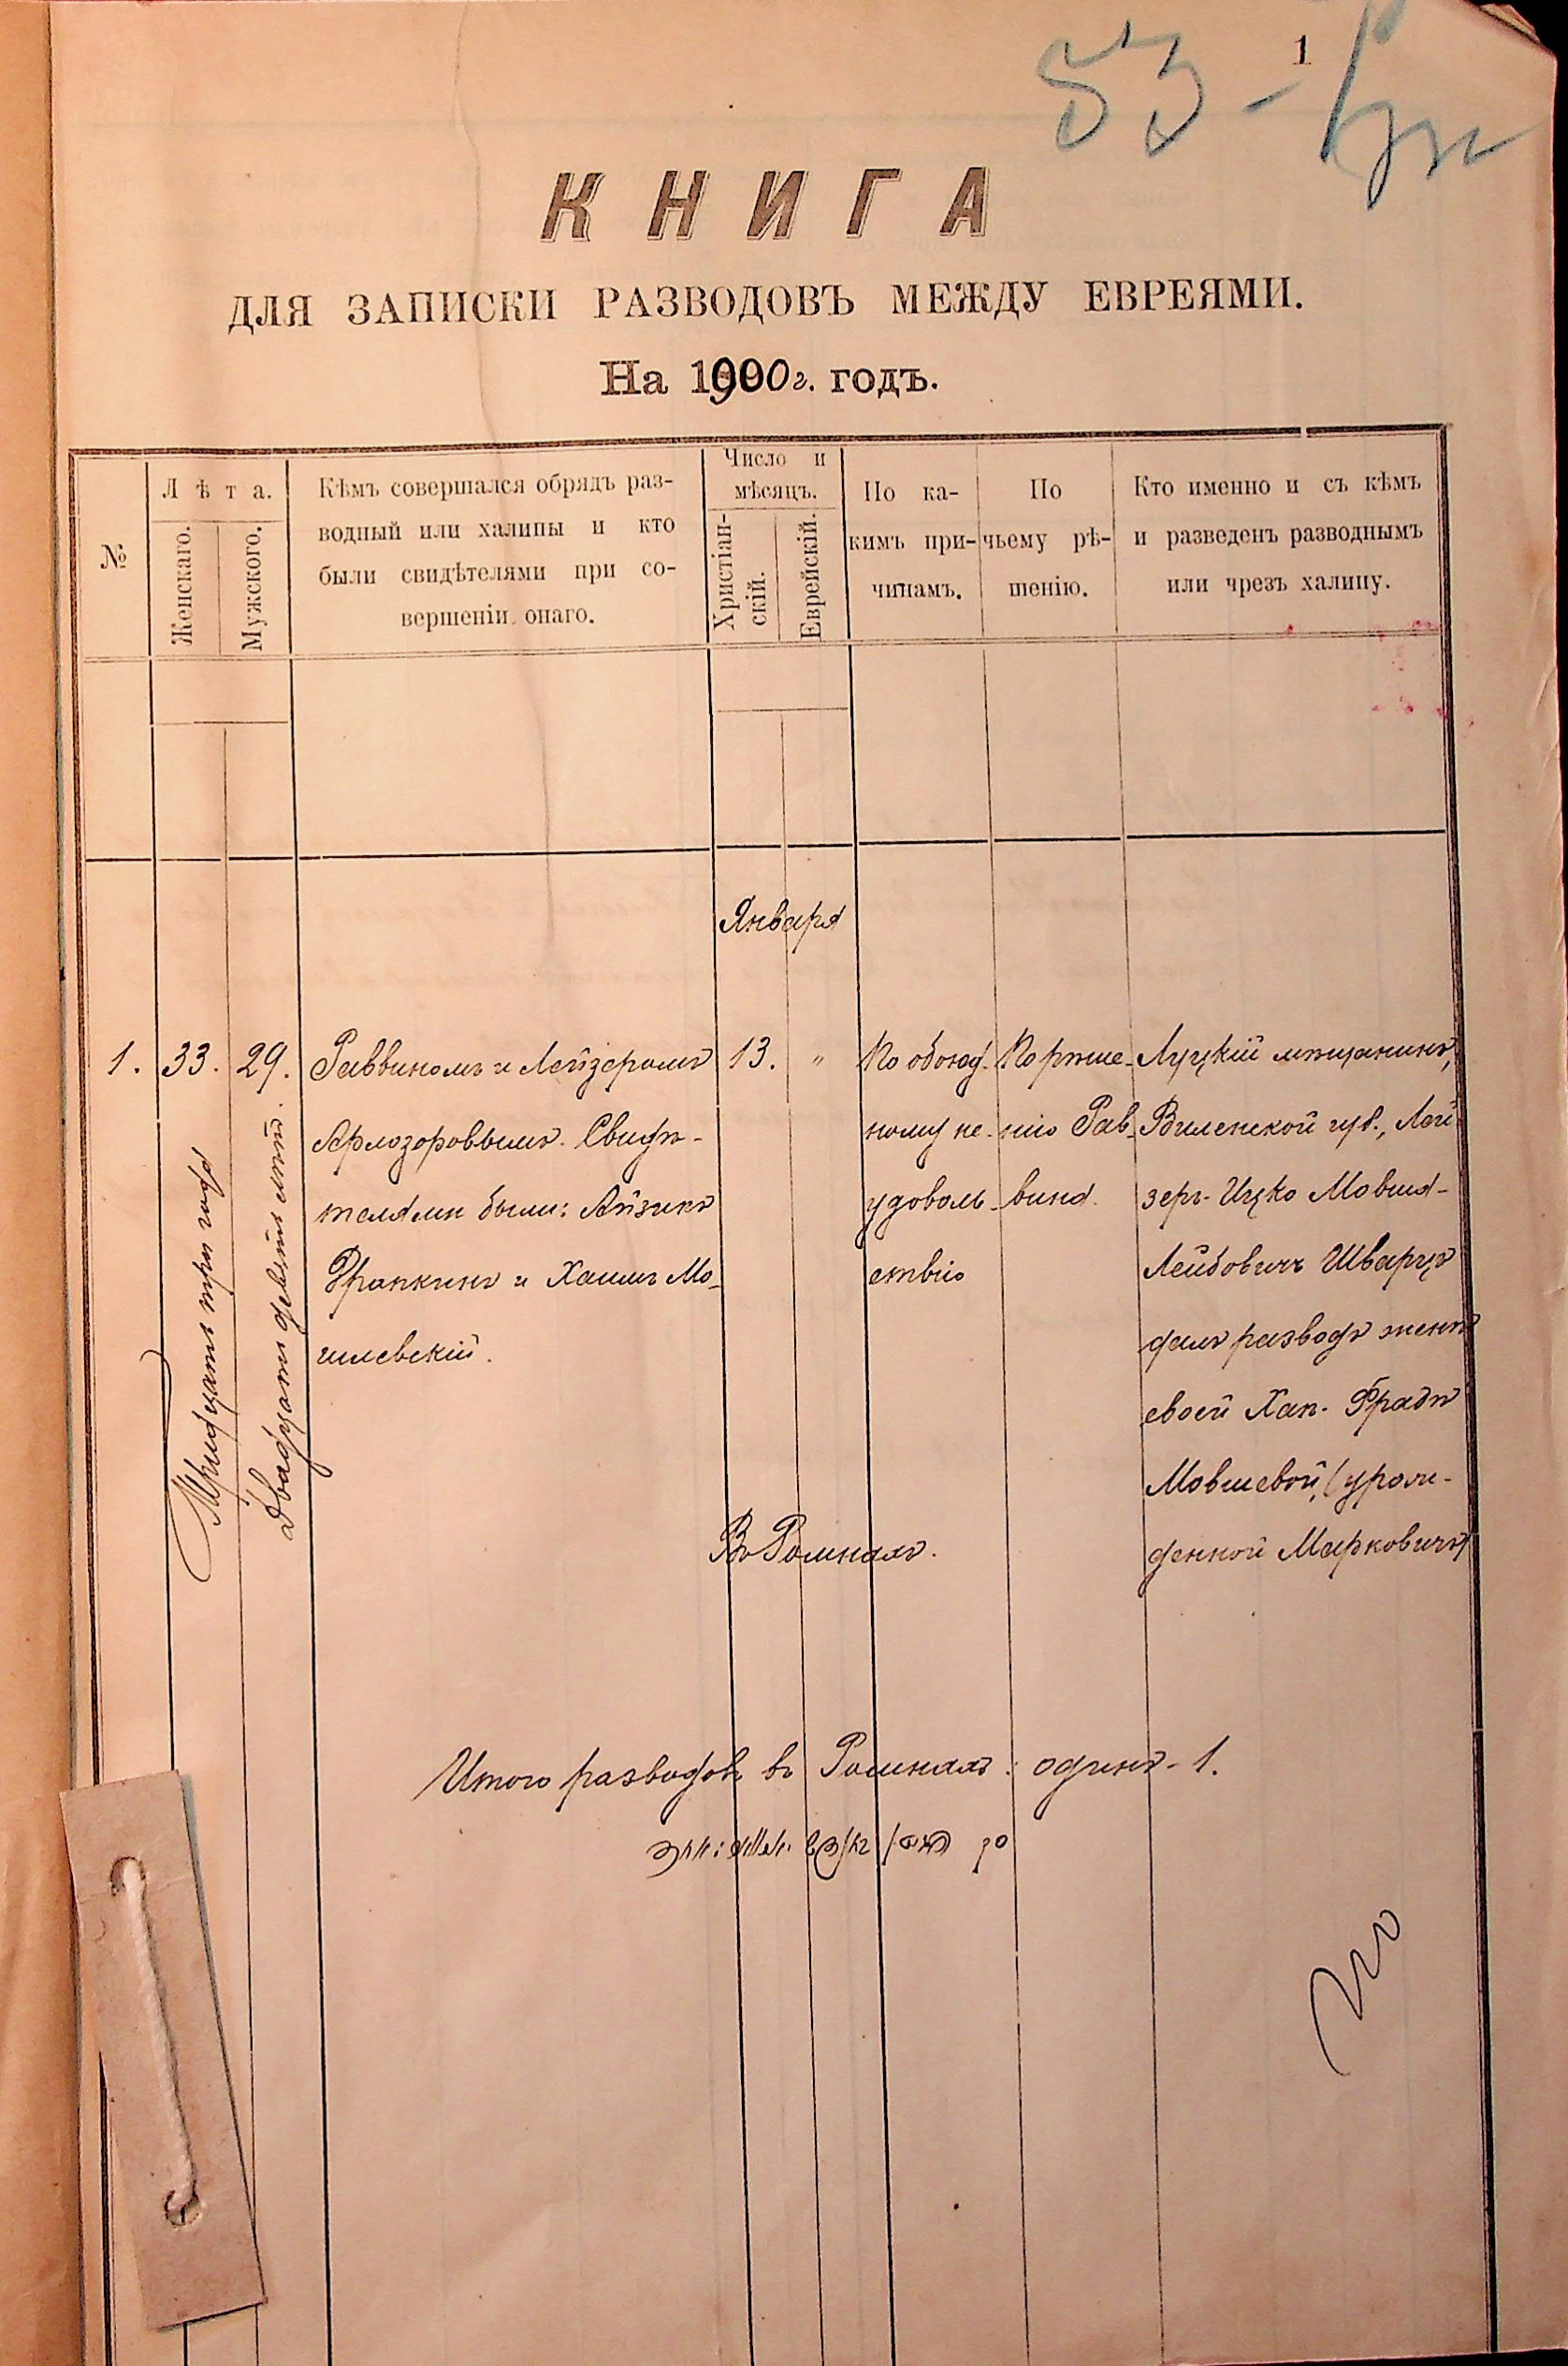 1
53 -
КНИГА
ДЛЯ ЗАПИСКИ РАЗВОДОВЪ МЕЖДУ ЕВРЕЯМИ.
На 1900 г. годъ.
№
Лѣта.
Женскаго.
Мужскаго.
Кѣмъ совершался обрядъ раз-
водный или халипы и кто
были свидѣтелями при со-
вершеніи онаго.
Число и
мѣсяцъ.
Христіан-
скій.
Еврейскій.
По ка-
кимъ при-
чинамъ.
По
чьему рѣ-
шенію.
Кто именно и съ кѣмъ
и разведенъ разводнымъ
или чрезъ халицу.
Января
1.
33.
Тридцать три года
29.
Двадцать девять лѣтъ.
Раввиномъ и Лейзеромъ
Арлозоровымъ. Свидѣ-
телями были: Айзикъ
Фрапкинъ и Хаимъ Мо-
гилевскій.
13.
"
По обоюд-
ному не-
удоволь-
ствію
По рѣше-
нію Рав-
вина.
Луцкій мѣщанинъ,
Виленской губ., Лей-
зеръ-Ицко Мовша-
Лейбовичъ Шварцъ
далъ разводъ женѣ
своей Хан-Фрадѣ
Мовшевой, (урож-
денной Марковичъ)
Въ Ромнахъ.
Итого разводовъ въ Ромнахъ: одинъ - 1.